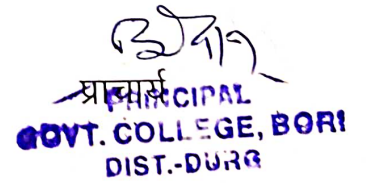 प्राचार्य
PRINCIPAL
GOVT. COLLEGE, BORI
DIST.-DURG